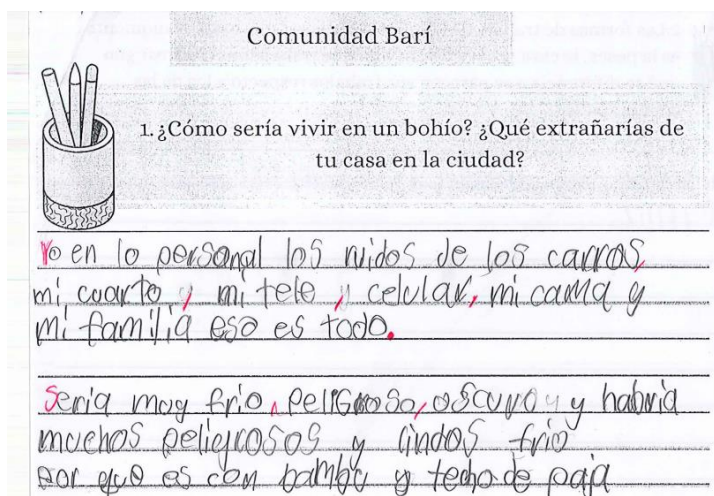 Comunidad Barí
1. ¿Cómo sería vivir en un bohío? ¿Qué extrañarías de
tu casa en la ciudad?
Yo en lo personal los ruidos de los carros,
mi cuarto, mi tele, celular, mi cama y
mi familia eso es todo.
Seria muy frio, peligroso, oscuro y habria
muchos peligrosos y lindos frio
por que es con bambú y techo de paja